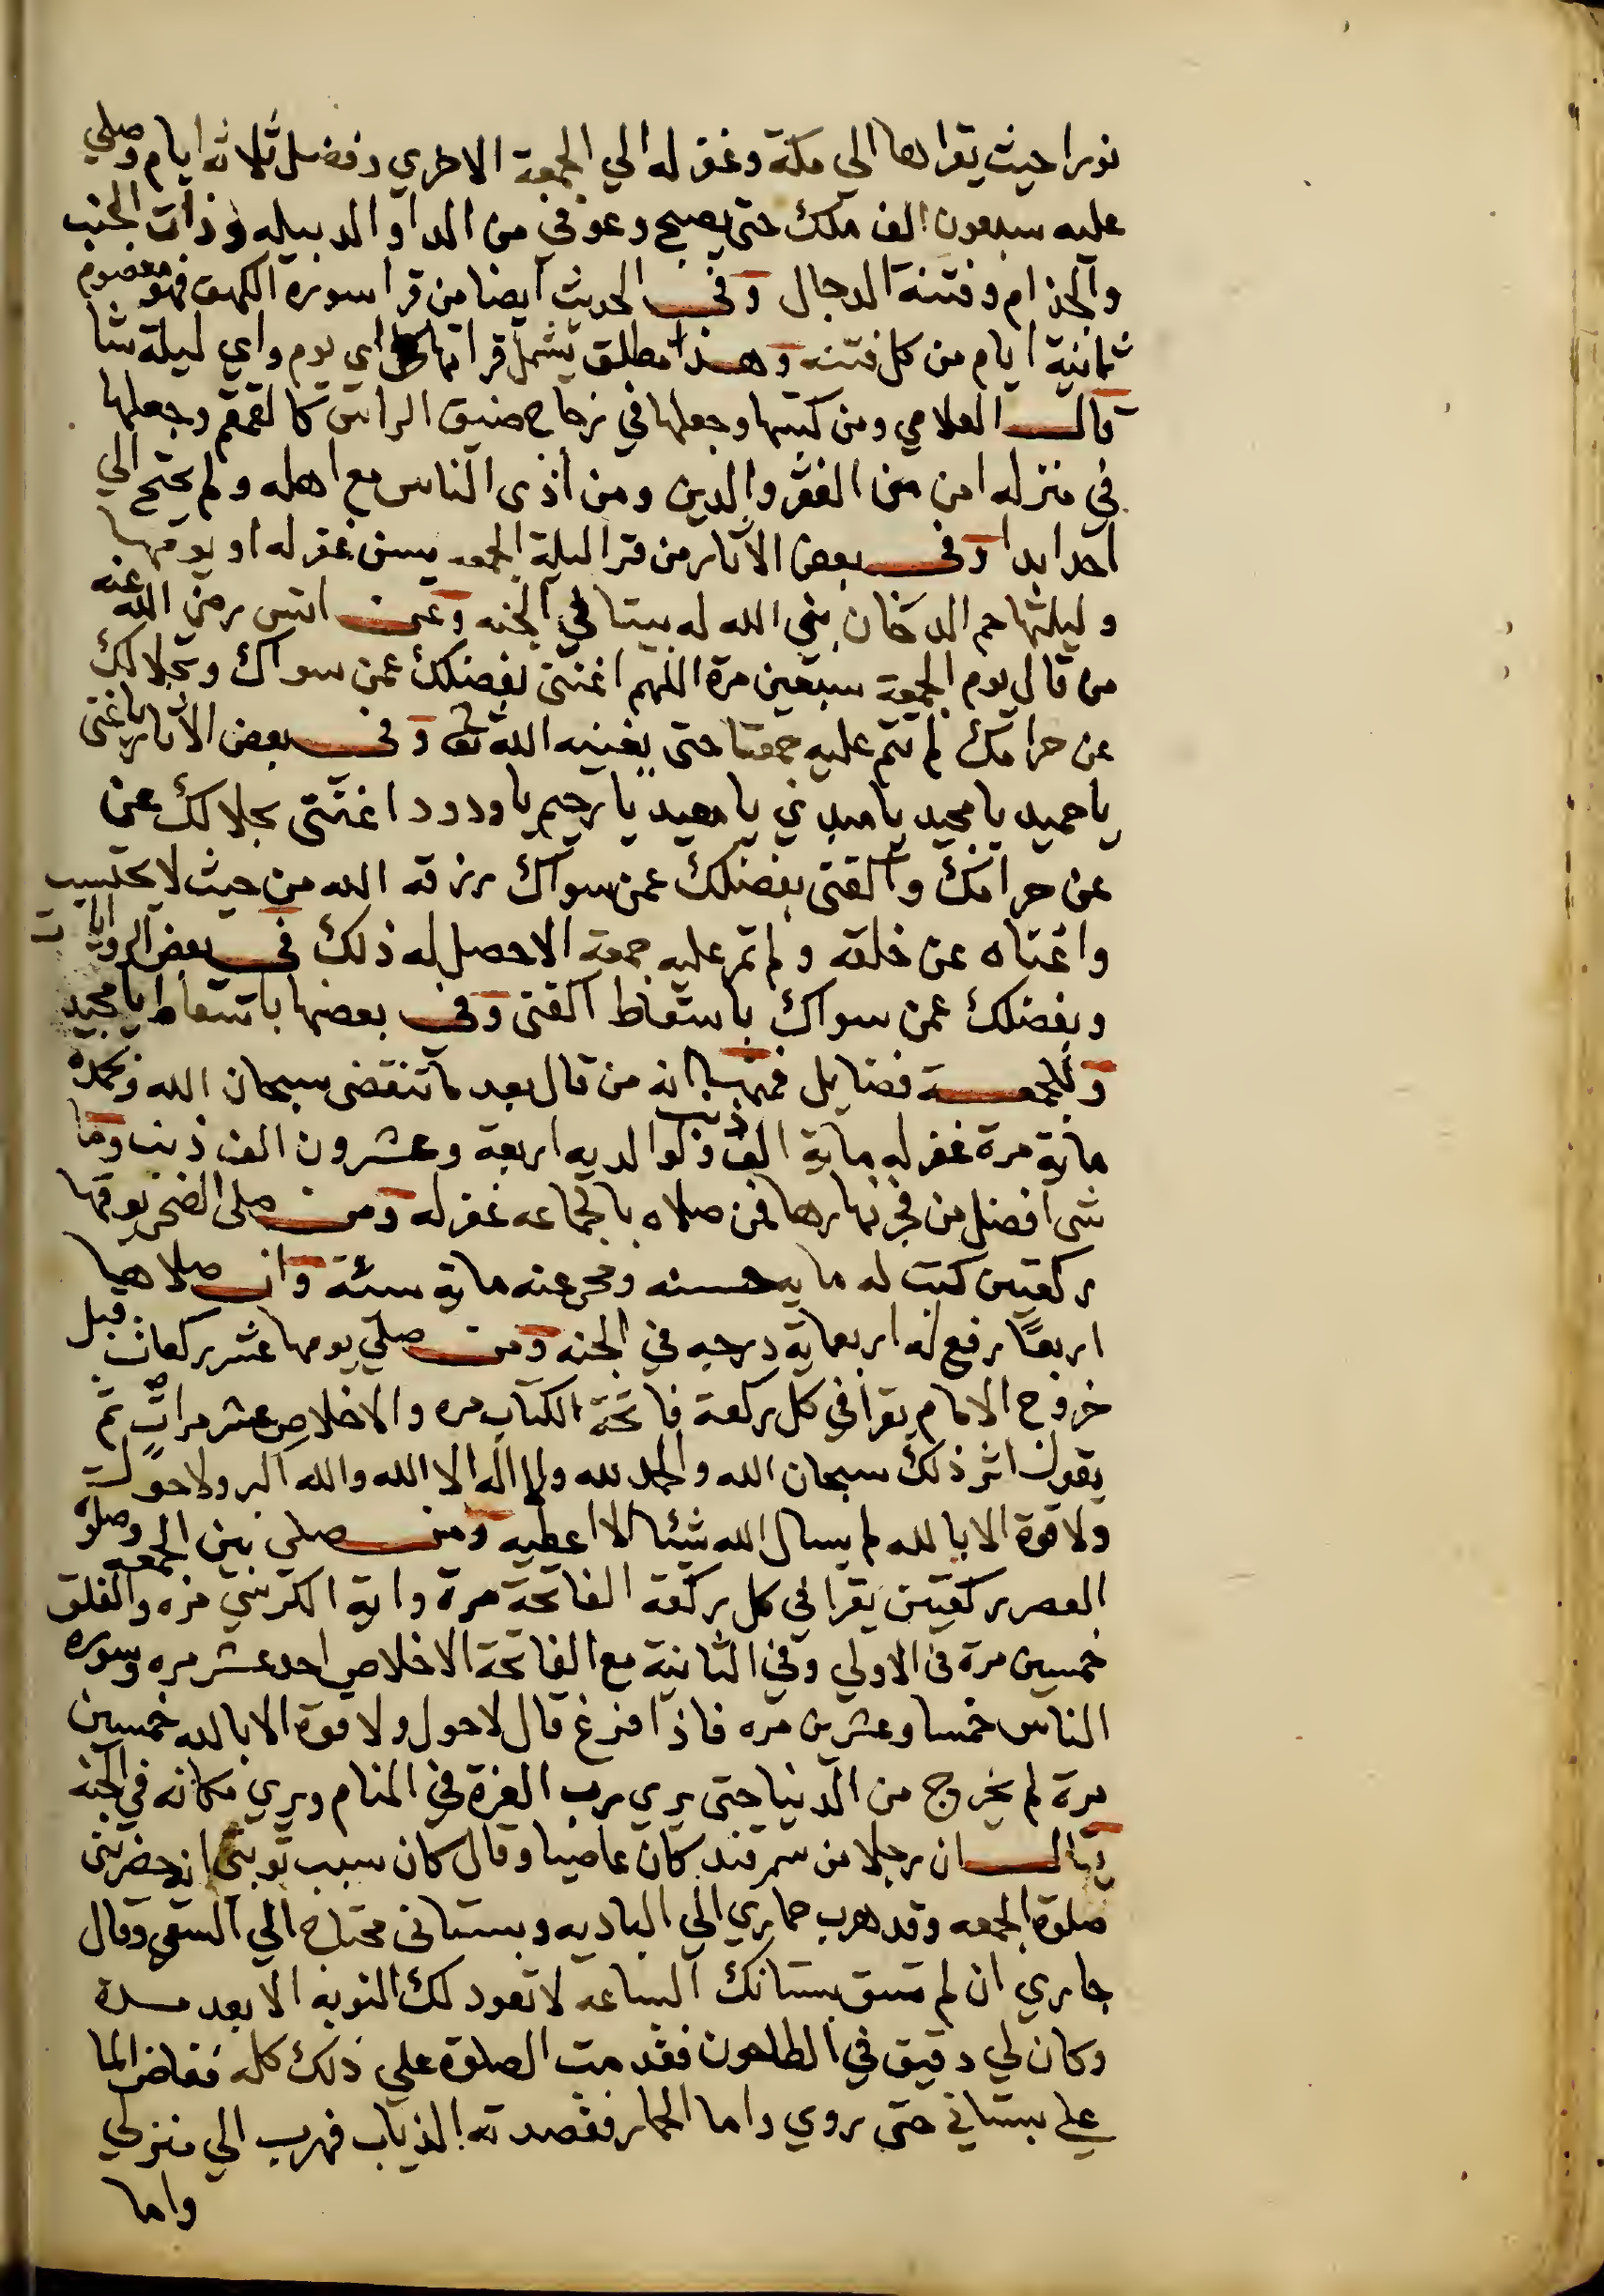 نورا حيث يقراها الي مكة وغفر له الي الجمعة الاخري وفضل ثلاثه ايام وصلي
عليه سبعون الف ملك حتي يصبح وعوفي من الدا والدبيله وذات الجنب
والجذام وفتنة الدجال وفي الحديث ايضا من قرا سورة الكهف فهو معصوم
ثمانية ايام من كل فتنه وهذا مطلق يشمل قراتها اي يوم واي ليلة شا
قال العلامي ومن كتبها وجعلها في زجاج ضيق الراس كالقمقم وجعلها
في منزله امن من الفقر والدين ومن اذي الناس مع اهله ولم يحتج الي
احد ابدا وفي بعض الآثار من قرا ليلة الجمعه يس غفر له او يومها
وليلتها حم الدخان بني الله له بيتا في الجنه وعن انس رضي الله عنه
من قال يوم الجمعة سبعين مرة اللهم اغنني بفضلك عمن سواك وبحلالك
عن حرامك لم تتم عليه جمعتا حتي يغنيه الله تع وفي بعض الآثار يا غني
يا حميد يا مجيد يا مبدي يا معيد يا رحيم يا ودود اغنني بحلالك عن
عن حرامك واكفني بفضلك عمن سواك رزقه الله من حيث لا يحتسب
واغناه عن خلقه ولم تمر عليه جمعة الا حصل له ذلك في بعض الروايات
وبفضلك عمن سواك باسقاط اكفني وفي بعضها باسقاط يا مجيد
وللجمعة فضايل فمنها انه من قال بعد ما تنقضي سبحان الله وبحمده
ماية مرة غفر له ماية الف ذنب ولوالديه اربعة وعشرون الف ذنب وما
شي افضل من فجر نهارها فمن صلاه بالجماعه غفر له ومن صلي الضحي يومها
ركعتين كتب له مايه حسنه ومحي عنه ماية سيئة وان صلاها
اربعًا رفع له اربعماية درجه في الجنه ومن صلي يومها عشر ركعات قبل
خروج الامام يقرا في كل ركعة فاتحة الكتاب مره والاخلاص عشر مرات ثم
يقول اثر ذلك سبحان الله والحمد لله ولا اله الا الله والله اكبر ولا حول
ولا قوة الا بالله لم يسال الله شيئا الا اعطيه ومن صلي بين الجمعه وصلوة
العصر ركعتين يقرا في كل ركعة الفاتحة مرة واية الكرسي مره والفلق
خمسين مرة في الاولي وفي الثانية مع الفاتحة الاخلاص احد عشر مره وسوره
الناس خمسا وعشرين مره فاذا فرغ قال لا حول ولا قوة الا بالله خمسين
مرة لم يخرج من الدنيا حتي يري رب العزة في المنام ويري مكانه في الجنه
يقال ان رجلا من سمرقند كان عاصيا وقال كان سبب توبتي ان حضرتني
صلوة الجمعه وقد هرب حماري الي الباديه وبستاني محتاج الي السقي وقال
جاري ان لم تسق بستانك الساعه لا تعود لك النوبه الا بعد مدة
وكان لي دقيق في الطاحون فقدمت الصلوة علي ذلك كله ففاض الما
علي بستاني حتي روي واما الحمار فقصدته الذياب فهرب الي منزلي
واما